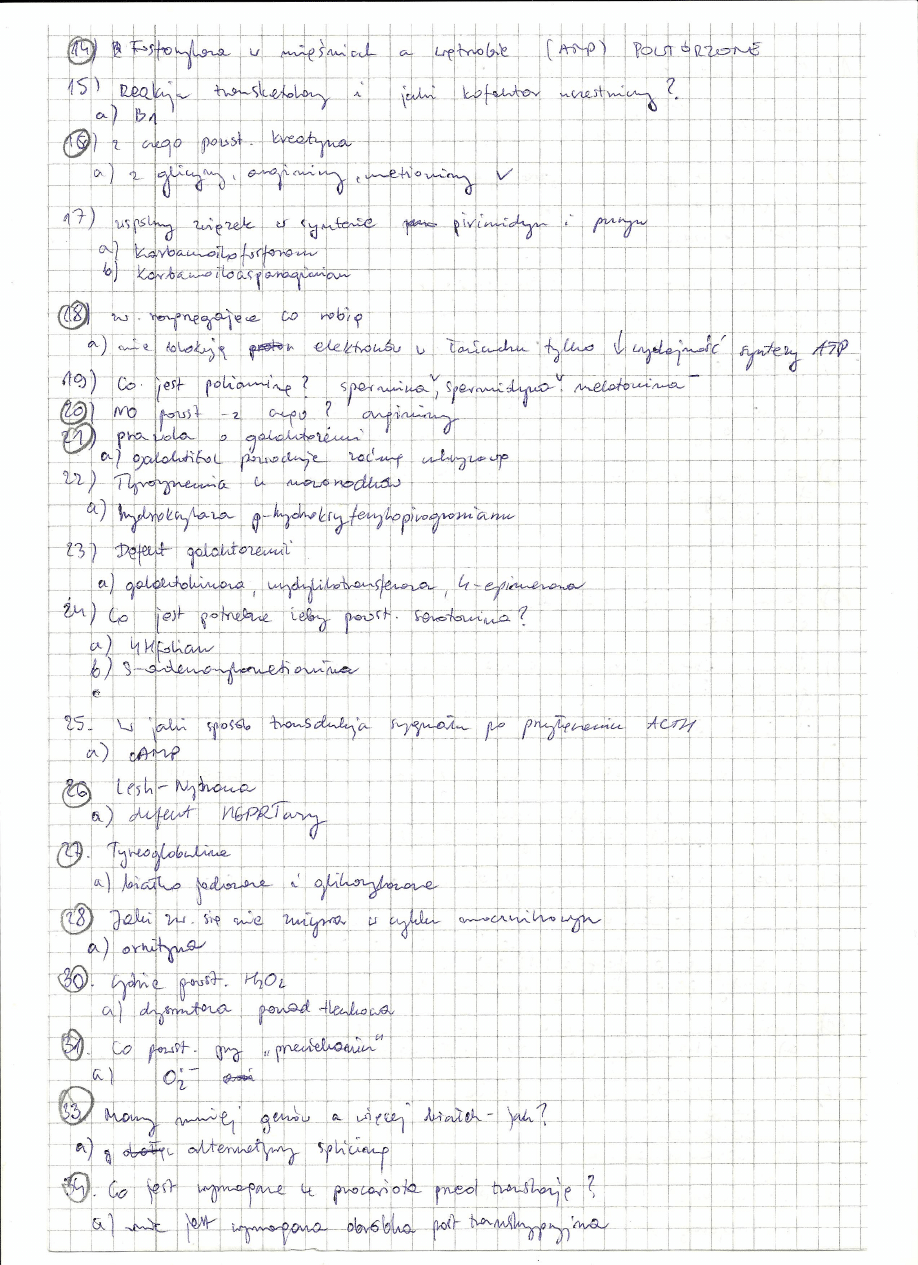 14) Fosforylaza w mięśniach a wątrobie (AMP) POWTÓRZONE
15) Reakcja transketolazy i jaki kofaktor uczestniczy?
a) B1
16) z czego powst. kreatyna
a) z glicyny, argininy, metioniny ✓
17) wspólny związek w syntezie pirimidyn i puryn
a) Karbamoilofosforan
b) Karbamoiloasparaginian
18) zw. rozprzęgające co robią
a) nie blokują elektronów w łańcuchu tylko ↓ wydajność syntezy ATP
19) Co jest poliaminą? spermina ✓, spermidyna ✓ melatonina –
20) NO powst – z czego? argininy
21) prawda o galaktozemii
a) galaktitol powoduje zaćmę
22) Tyrozynemia u noworodków
a) hydroksylaza p-hydroksyfenylopirogronianu
23) Defekt galaktozemii
a) galaktokinaza, urydylilotransferaza, 4-epimeraza
24) Co jest potrzebne żeby powst. serotonina?
a) 4Hfolian
b) S-adenozylometionina
25. W jaki sposób transdukcja sygnału po przyłączeniu ACTH
a) cAMP
26 Lesh-Nyhana
a) defekt HGPRTazy
27. Tyreoglobulina
a) białko jodowane i glikozylowane
28) Jaki zw. się nie zużywa w cyklu mocznikowym
a) ornityna
30. Gdzie powst. H₂O₂
a) dysmutaza ponadtlenkowa
31. Co powst. przy „przeciekaniu"
a) O₂·⁻
33 Mamy mniej genów a więcej białek – jak?
a) alternatywny splicing
34. Co jest wymagane u procariota przed translacją?
a) nie jest wymagana obróbka posttranskrypcyjna